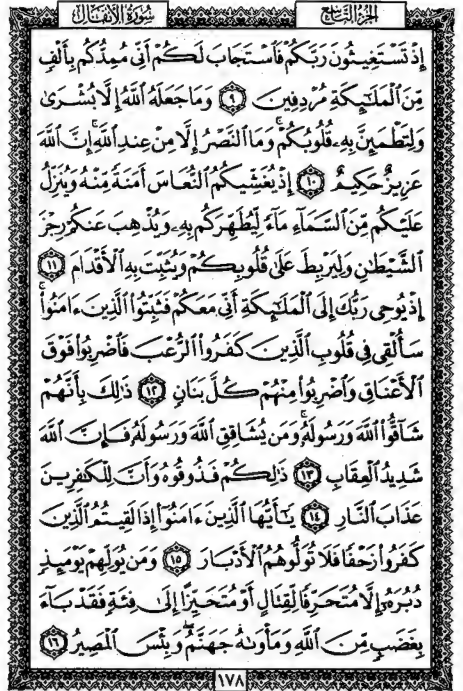 سُورَةُ الأَنفَال
الجُزءُ التَّاسِع
إِذْ تَسْتَغِيثُونَ رَبَّكُمْ فَٱسْتَجَابَ لَكُمْ أَنِّى مُمِدُّكُم بِأَلْفٍ
مِّنَ ٱلْمَلَٰٓئِكَةِ مُرْدِفِينَ ٩ وَمَا جَعَلَهُ ٱللَّهُ إِلَّا بُشْرَىٰ
وَلِتَطْمَئِنَّ بِهِۦ قُلُوبُكُمْ ۚ وَمَا ٱلنَّصْرُ إِلَّا مِنْ عِندِ ٱللَّهِ ۚ إِنَّ ٱللَّهَ
عَزِيزٌ حَكِيمٌ ١٠ إِذْ يُغَشِّيكُمُ ٱلنُّعَاسَ أَمَنَةً مِّنْهُ وَيُنَزِّلُ
عَلَيْكُم مِّنَ ٱلسَّمَآءِ مَآءً لِّيُطَهِّرَكُم بِهِۦ وَيُذْهِبَ عَنكُمْ رِجْزَ
ٱلشَّيْطَٰنِ وَلِيَرْبِطَ عَلَىٰ قُلُوبِكُمْ وَيُثَبِّتَ بِهِ ٱلْأَقْدَامَ ١١
إِذْ يُوحِى رَبُّكَ إِلَى ٱلْمَلَٰٓئِكَةِ أَنِّى مَعَكُمْ فَثَبِّتُوا۟ ٱلَّذِينَ ءَامَنُوا۟ ۚ
سَأُلْقِى فِى قُلُوبِ ٱلَّذِينَ كَفَرُوا۟ ٱلرُّعْبَ فَٱضْرِبُوا۟ فَوْقَ
ٱلْأَعْنَاقِ وَٱضْرِبُوا۟ مِنْهُمْ كُلَّ بَنَانٍ ١٢ ذَٰلِكَ بِأَنَّهُمْ
شَآقُّوا۟ ٱللَّهَ وَرَسُولَهُۥ ۚ وَمَن يُشَاقِقِ ٱللَّهَ وَرَسُولَهُۥ فَإِنَّ ٱللَّهَ
شَدِيدُ ٱلْعِقَابِ ١٣ ذَٰلِكُمْ فَذُوقُوهُ وَأَنَّ لِلْكَٰفِرِينَ
عَذَابَ ٱلنَّارِ ١٤ يَٰٓأَيُّهَا ٱلَّذِينَ ءَامَنُوٓا۟ إِذَا لَقِيتُمُ ٱلَّذِينَ
كَفَرُوا۟ زَحْفًا فَلَا تُوَلُّوهُمُ ٱلْأَدْبَارَ ١٥ وَمَن يُوَلِّهِمْ يَوْمَئِذٍ
دُبُرَهُۥٓ إِلَّا مُتَحَرِّفًا لِّقِتَالٍ أَوْ مُتَحَيِّزًا إِلَىٰ فِئَةٍ فَقَدْ بَآءَ
بِغَضَبٍ مِّنَ ٱللَّهِ وَمَأْوَىٰهُ جَهَنَّمُ ۖ وَبِئْسَ ٱلْمَصِيرُ ١٦
١٧٨